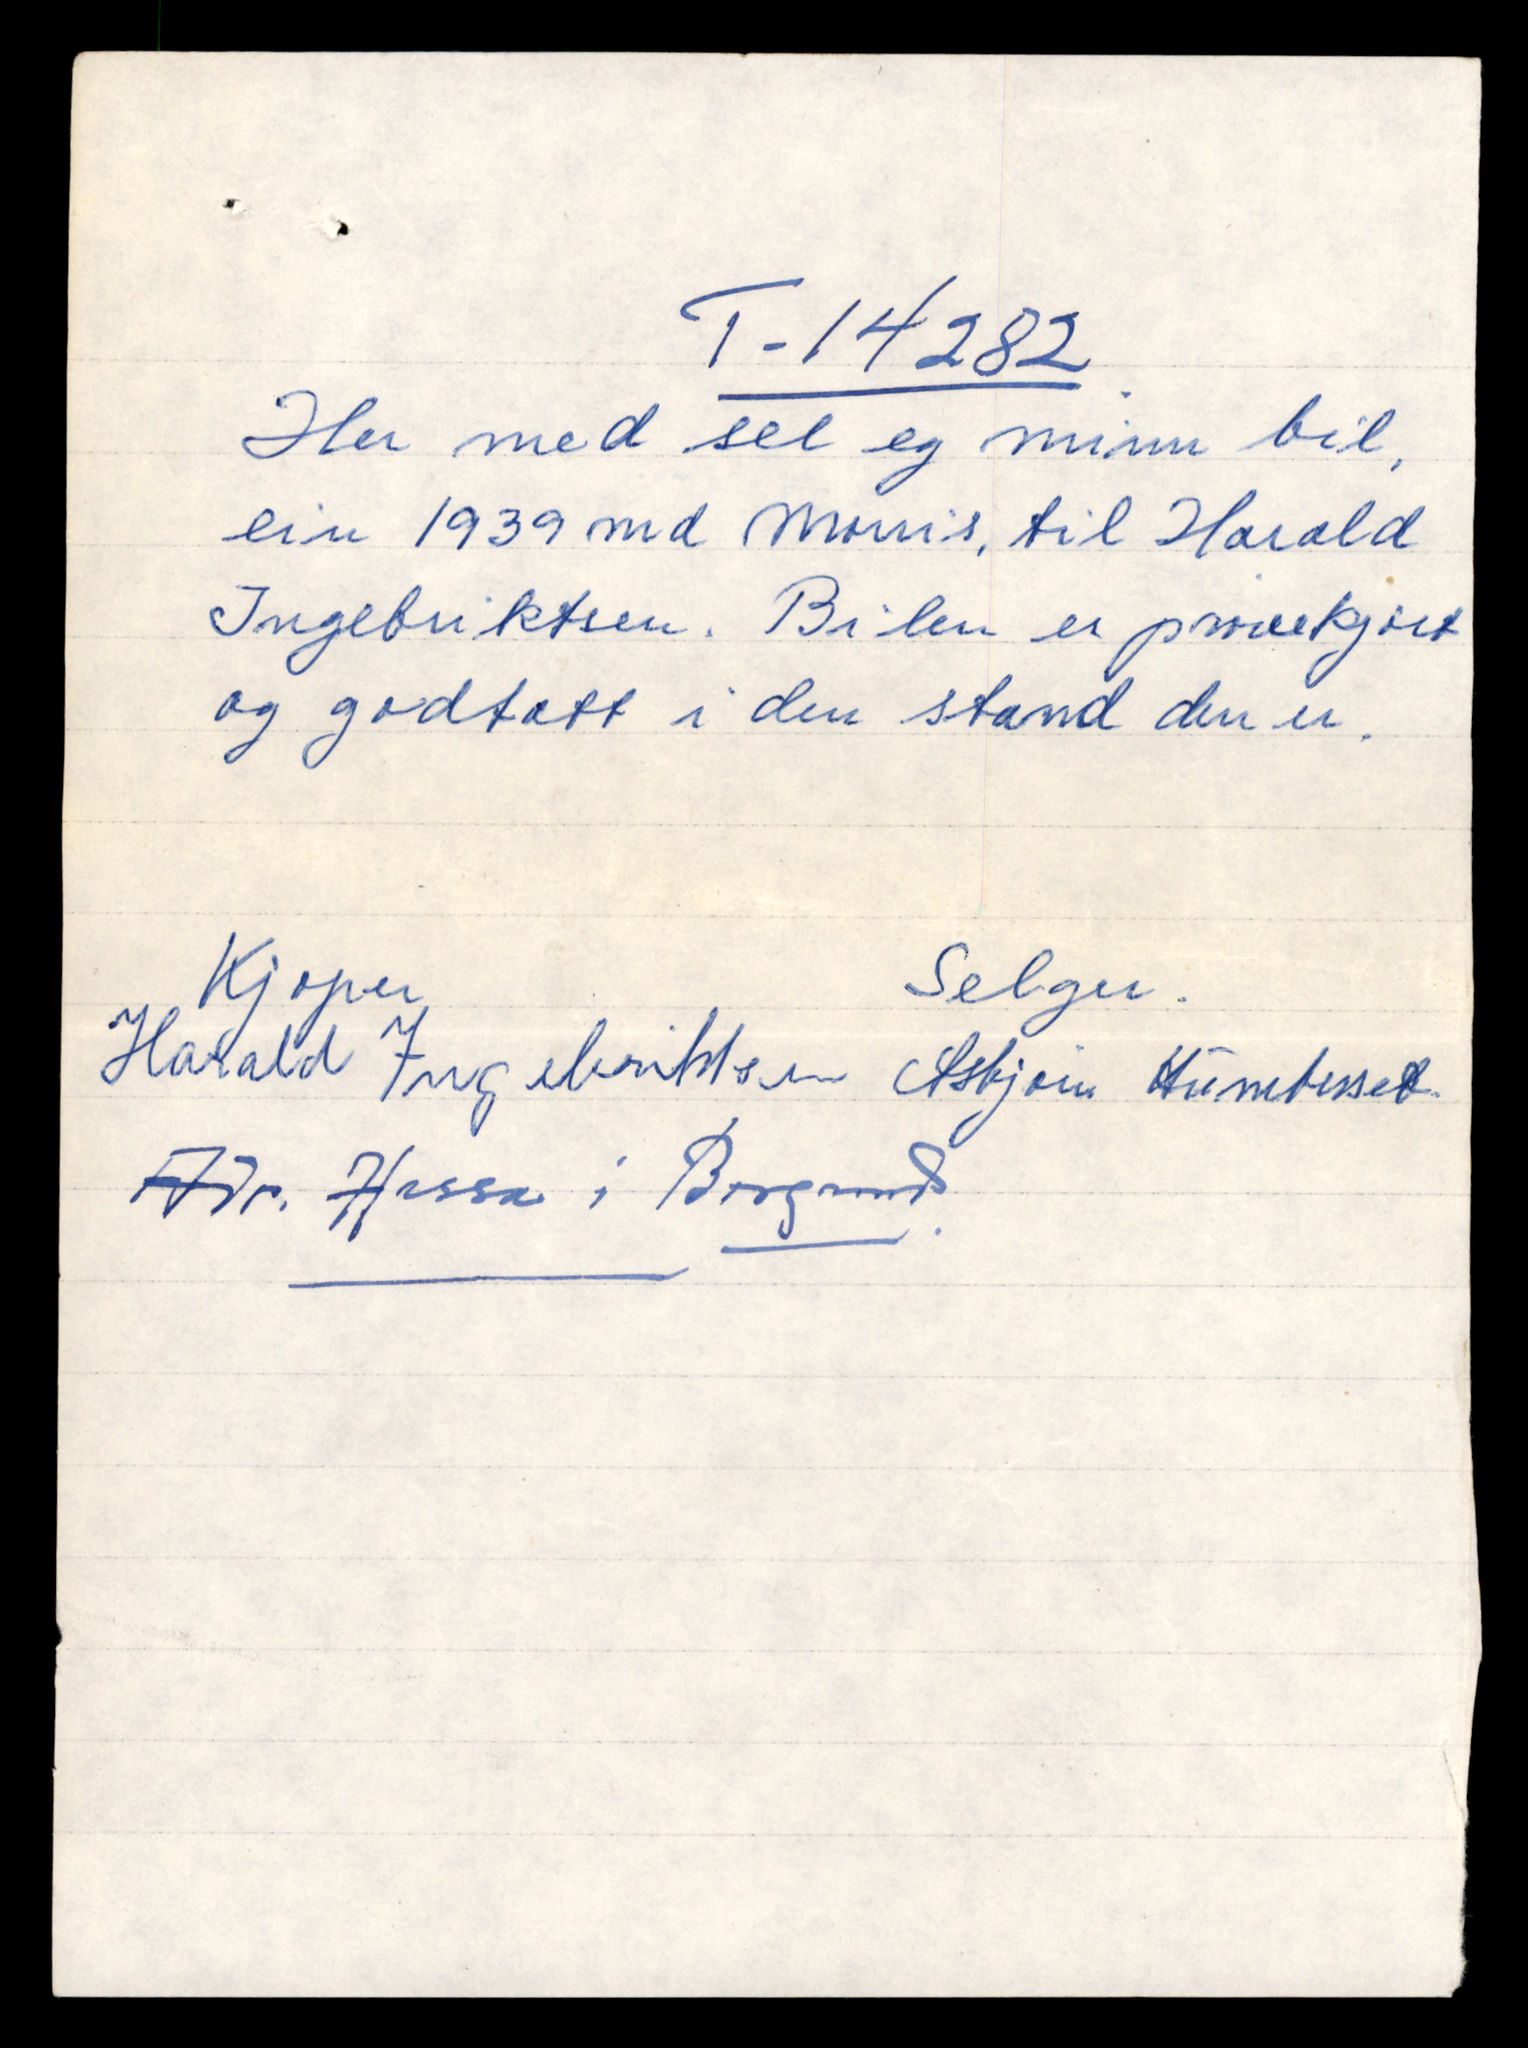 T-14282
Her med sel eg minn bil,
ein 1939 md Morris, til Harald
Ingebriktsen. Bilen er prøvekjørt
og godtatt i den stand den er.
Kjøper Selger.
Harald Ingebriktsen Asbjørn Humberset
Adr. Hessa i Borgund.